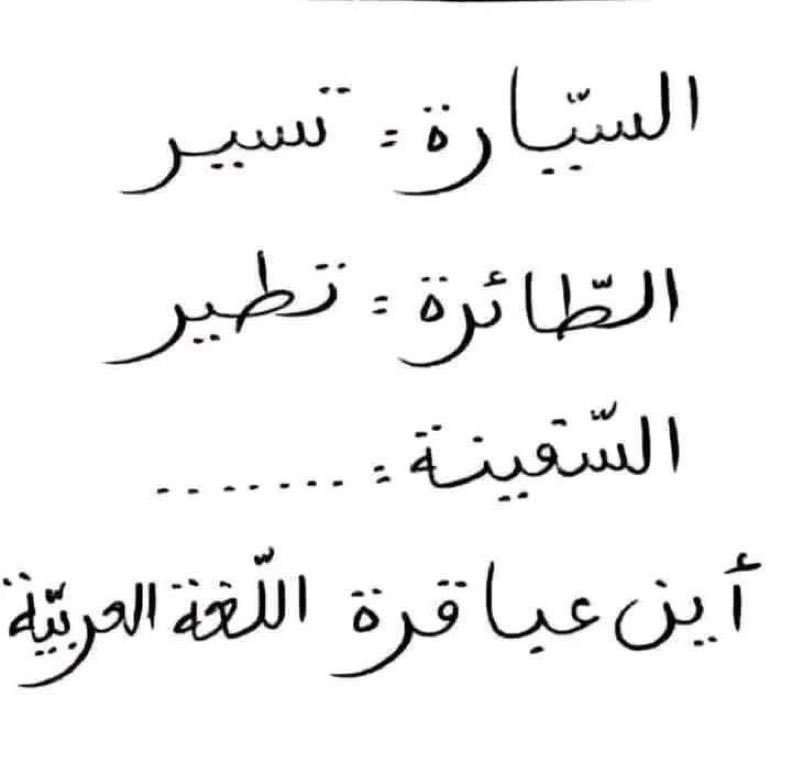 السّيارة = تسير
الطّائرة = تطير
السّفينة = ........
أين عباقرة اللّغة العربيّة